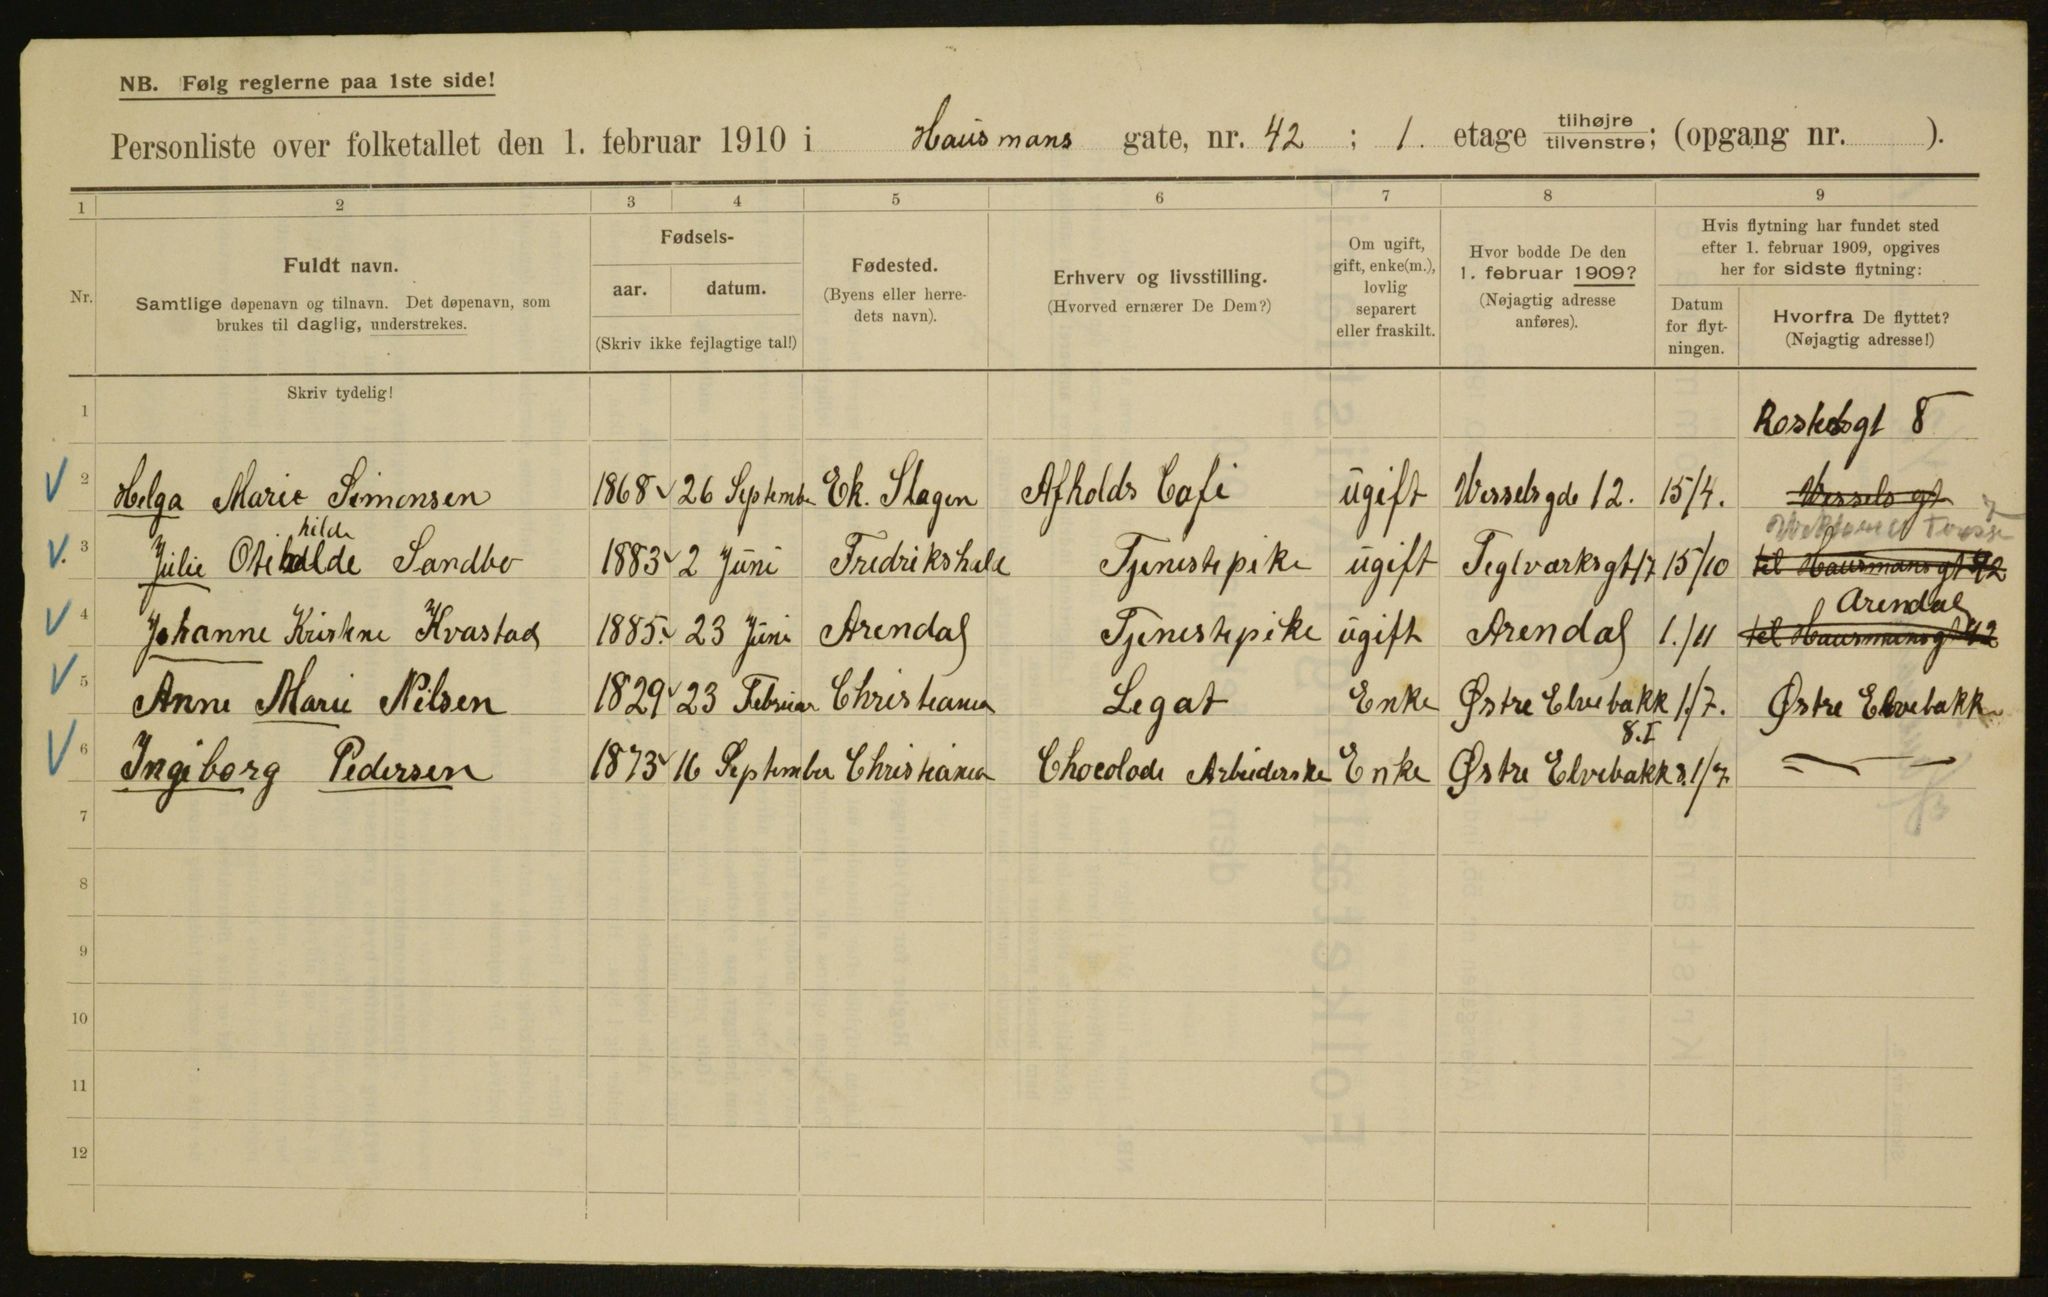 NB. Følg reglerne paa 1ste side!
Personliste over folketallet den 1. februar 1910 i Hausmans gate, nr. 42 ; 1. etage tilhøjre tilvenstre; (opgang nr. ).
1 2 3 4 5 6 7 8 9
Nr.
Fuldt navn.
Samtlige døpenavn og tilnavn. Det døpenavn, som
brukes til daglig, understrekes.
Fødsels-
aar. datum.
(Skriv ikke fejlagtige tal!)
Fødested.
(Byens eller herre-
dets navn).
Erhverv og livsstilling.
(Hvorved ernærer De Dem?)
Om ugift,
gift, enke(m.),
lovlig
separert
eller fraskilt.
Hvor bodde De den
1. februar 1909?
(Nøjagtig adresse
anføres).
Hvis flytning har fundet sted
efter 1. februar 1909, opgives
her for sidste flytning:
Datum
for flyt-
ningen.
Hvorfra De flyttet?
(Nøjagtig adresse!)
Skriv tydelig!
1 8
2 Helga Marie Simensen 1868 26 September Ek. Slagen Afholds Cafe ugift Wesselsgde 12. 15/4. Wessels gt
hilde
3 Julie Sandbo 1883 2 Juni Fredrikshald Tjenestepike ugift Teglværksgt 17 15/10 til Hausmansgt 42
Arendal
4 Johanne Kristine Kvastad 1885. 23 Juni Arendal Tjenestepike ugift Arendal 1./11 til Hausmansgt 42
5 Anne Marie Nilsen 1829 23 Februar Christiania Legat Enke Østre Elvebakk 1/7. Østre Elvebakk
8.I
6 Ingeborg Pedersen 1873 16 September Christiania Chocolade Arbeiderske Enke Østre Elvebakk 8. 1/7. — " —
7
8
9
10
11
12